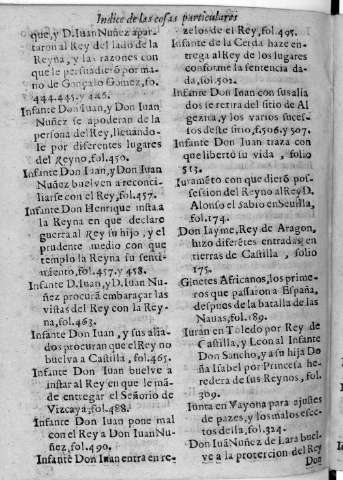 Indice de las cosas particulares
que, y D. Iuan Nuñez apar-
taron al Rey del lado de la
Reyna, y las razones con
que le persuadiò por ma-
no de Gonçalo Gomez, fo.
444.445. y 446.
Infante Don Iuan, y Don Iuan
Nuñez se apoderan de la
persona del Rey, lleuando-
le por diferentes lugares
del Reyno, fol.450.
Infante Don Iuan, y Don Iuan
Nuñez buelven a reconci-
liarse con el Rey, fol.457.
Infante Don Henrique insta a
la Reyna en que declare
guerra al Rey su hijo, y el
prudente medio con que
templo la Reyna su senti-
miento, fol.457. y 458.
Infante D. Iuan, y D. Iuan Nu-
ñez procurã embaraçar las
vistas del Rey con la Rey-
na, fol.463.
Infante Don Iuan, y sus alia-
dos procuran que el Rey no
buelva a Castilla, fol.465.
Infante Don Iuan buelve a
instar al Rey en que le mã-
de entregar el Señorio de
Vizcaya, fol.488.
Infante Don Iuan pone mal
con el Rey a Don Iuan Nu-
ñez, fol.490.
Infante Don Iuan entra en re-
zelos de el Rey, fol.495.
Infante de la Cerda haze en-
trega al Rey de los lugares
conforme la sentencia da-
da, fol.502.
Infante Don Iuan con sus alia
dos se retira del sitio de Al
gezira, y los varios suces-
tos deste sitio, f.506. y 507.
Infante Don Iuan traza con
que libertò su vida, folio
513.
Iuramẽto con que dierõ pos-
session del Reyno al Rey D.
Alonso el Sabio en Sevilla,
fol.174.
Don Iayme, Rey de Aragon,
hizo diferẽtes entradas en
tierras de Castilla, folio
175.
Ginetes Africanos, los prime-
ros que passaron a España,
despues de la batalla de las
Nauas, fol.189.
Iuran en Toledo por Rey de
Castilla, y Leon al Infante
Don Sancho, y a su hija Do
ña Isabel por Princesa he-
redera de sus Reynos, fol.
309.
Iunta en Vayona para ajustes
de pazes, y los malos efec-
tos della, fol.324.
Don Iuã Nuñez de Lara buel-
ve a la proteccion del Rey
Don